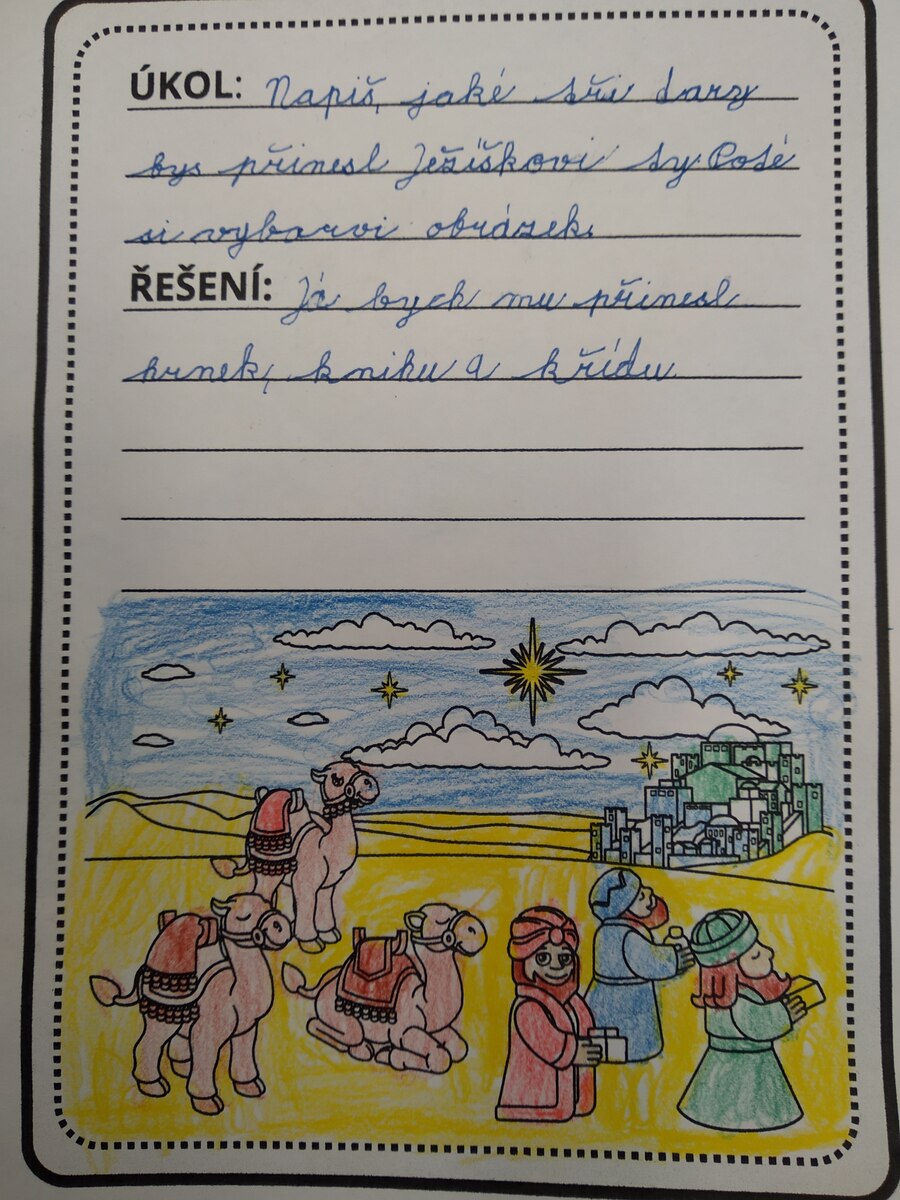 ÚKOL: Napiš, jaké tři dary
bys přinesl Ježíškovi ty. Poté
si vybarvi obrázek.
ŘEŠENÍ: Já bych mu přinesl
hrnek, knihu a křídu